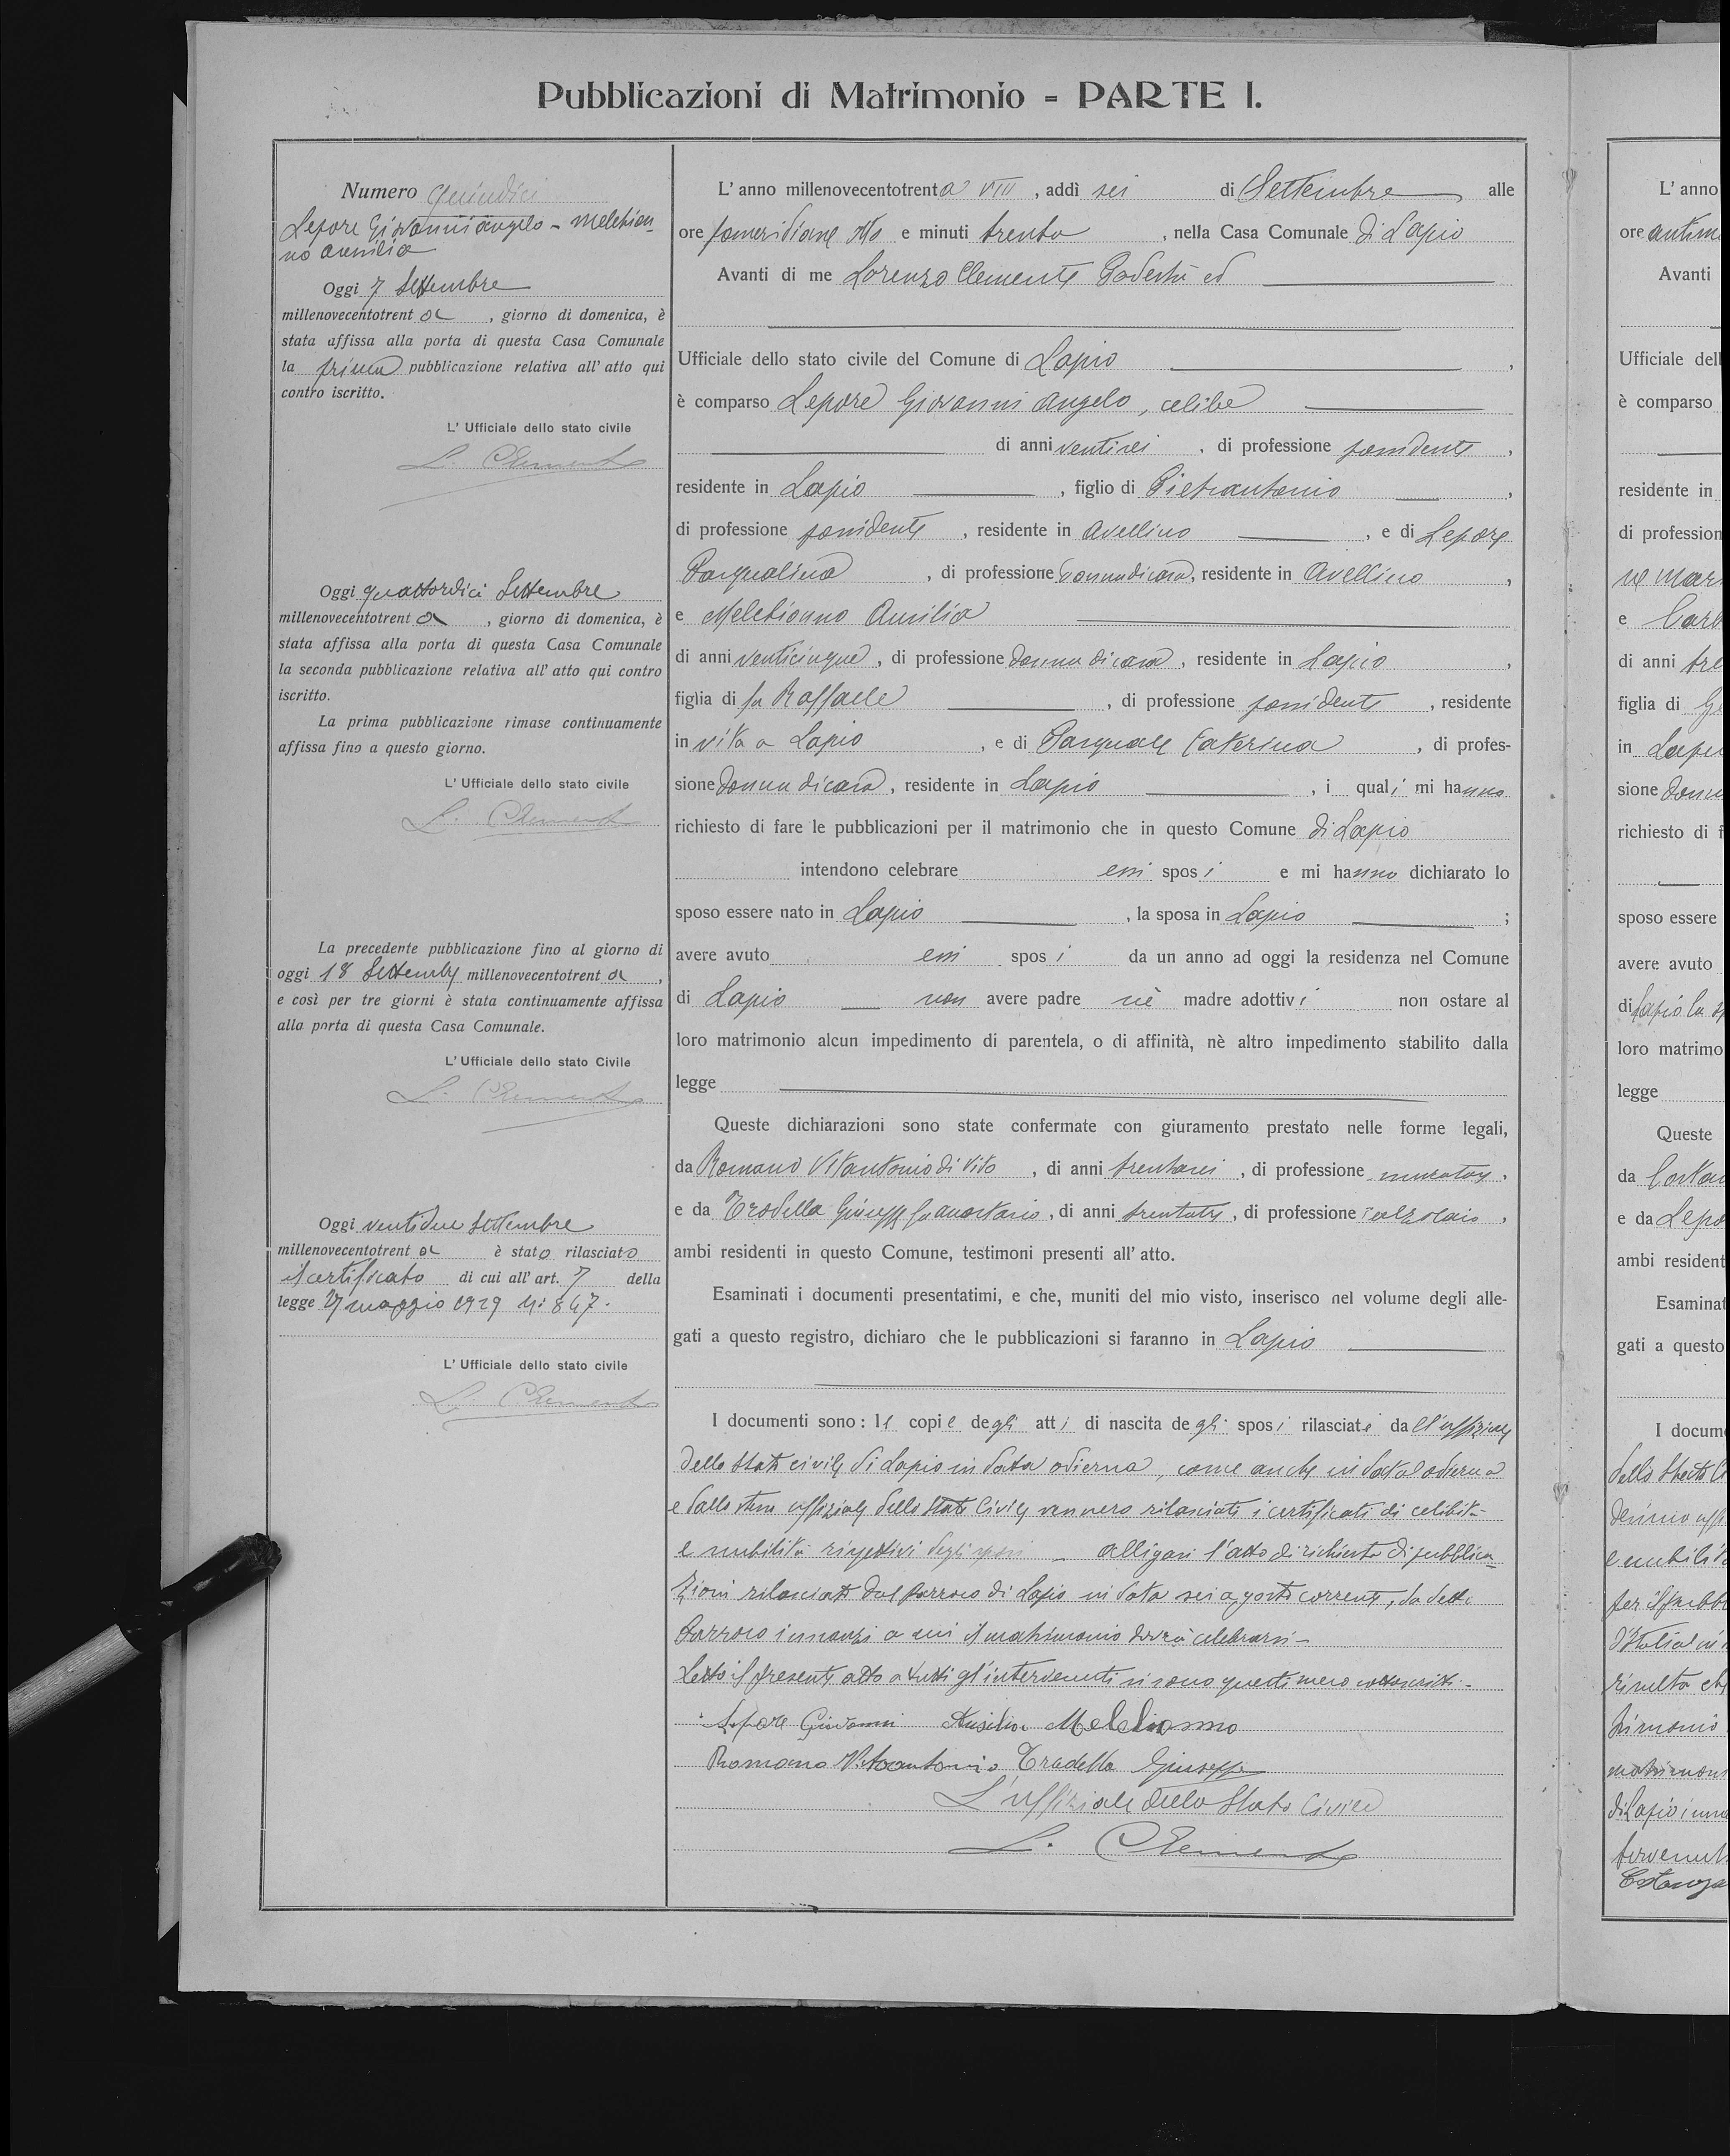 Pubblicazioni di Matrimonio = PARTE I.
Numero quindici
Lepore Giovanni angelo - Melchion-
no Ausilia
Oggi 7 Settembre
millenovecentotrent a , giorno di domenica, è
stata affissa alla porta di questa Casa Comunale
la prima pubblicazione relativa all' atto qui
contro iscritto.
L' Ufficiale dello stato civile
L. Clemente
Oggi quattordici Settembre
millenovecentotrent a , giorno di domenica, è
stata affissa alla porta di questa Casa Comunale
la seconda pubblicazione relativa all' atto qui contro
iscritto.
La prima pubblicazione rimase continuamente
affissa fino a questo giorno.
L' Ufficiale dello stato civile
L. Clemente
La precedente pubblicazione fino al giorno di
oggi 18 Settembre millenovecentotrent a ,
e così per tre giorni è stata continuamente affissa
alla porta di questa Casa Comunale.
L' Ufficiale dello stato Civile
L. Clemente
Oggi ventidue Settembre
millenovecentotrent a è stato rilasciato
il certificato di cui all' art. 7 della
legge 27 maggio 1929 N: 847.
L' Ufficiale dello stato civile
L. Clemente
L' anno millenovecentotrenta VIII , addì sei di Settembre alle
ore pomeridiane otto e minuti trenta , nella Casa Comunale di Lapio
Avanti di me Lorenzo Clemente Podestà ed
Ufficiale dello stato civile del Comune di Lapio ,
è comparso Lepore Giovanni Angelo, celibe
di anni ventisei , di professione possidente ,
residente in Lapio , figlio di Pietrantonio ,
di professione possidente , residente in Avellino , e di Lepore
Pasqualina , di professione donna di casa, residente in Avellino ,
e Melchionno Ausilia
di anni venticinque , di professione donna di casa , residente in Lapio ,
figlia di fu Raffaele , di professione possidente , residente
in vita a Lapio , e di Pasquale Caterina , di profes-
sione donna di casa , residente in Lapio , i quali mi hanno
richiesto di fare le pubblicazioni per il matrimonio che in questo Comune di Lapio
intendono celebrare essi sposi e mi hanno dichiarato lo
sposo essere nato in Lapio , la sposa in Lapio ;
avere avuto essi sposi da un anno ad oggi la residenza nel Comune
di Lapio non avere padre nè madre adottivi non ostare al
loro matrimonio alcun impedimento di parentela, o di affinità, nè altro impedimento stabilito dalla
legge
Queste dichiarazioni sono state confermate con giuramento prestato nelle forme legali,
da Romano Vitantonio di Vito , di anni trentasei , di professione muratore ,
e da Trodella Giuseppe fu anastasio , di anni trentatre , di professione calzolaio ,
ambi residenti in questo Comune, testimoni presenti all' atto.
Esaminati i documenti presentatimi, e che, muniti del mio visto, inserisco nel volume degli alle-
gati a questo registro, dichiaro che le pubblicazioni si faranno in Lapio
I documenti sono: le copie degli atti di nascita degli sposi rilasciate dall'uffiziale
dello Stato civile di Lapio in data odierna, come anche in data odierna
e dallo stesso uffiziale dello Stato Civile vennero rilasciati i certificati di celibità
e nubilità rispettivi degli sposi - alligasi l'atto di richiesta di pubblica-
zioni rilasciata dal parroco di Lapio in data sei agosto corrente, da detto
Parroco innanzi a cui il matrimonio dovrà celebrarsi -
Letto il presente atto a tutti gl'intervenuti si sono questi meco sottoscritti -
Lepore Giovanni Ausilia Melchionno
Romano Vitoantonio Tradella Giuseppe
L'uffiziale dello Stato Civile
L. Clemente
L' anno
ore antim
Avanti
Ufficiale dell
è comparso
residente in
di profession
ne mar
e Carb
di anni tre
figlia di G
in Lapi
sione donn
richiesto di f
sposo essere
avere avuto
di Lapio la s
loro matrimo
legge
Queste
da
e da Lepo
ambi resident
Esaminat
gati a questo
I docum
dello Stato C
e nubilità
per
risulta ch
trimonio
matrimoni
di Lapio inna
tervenut